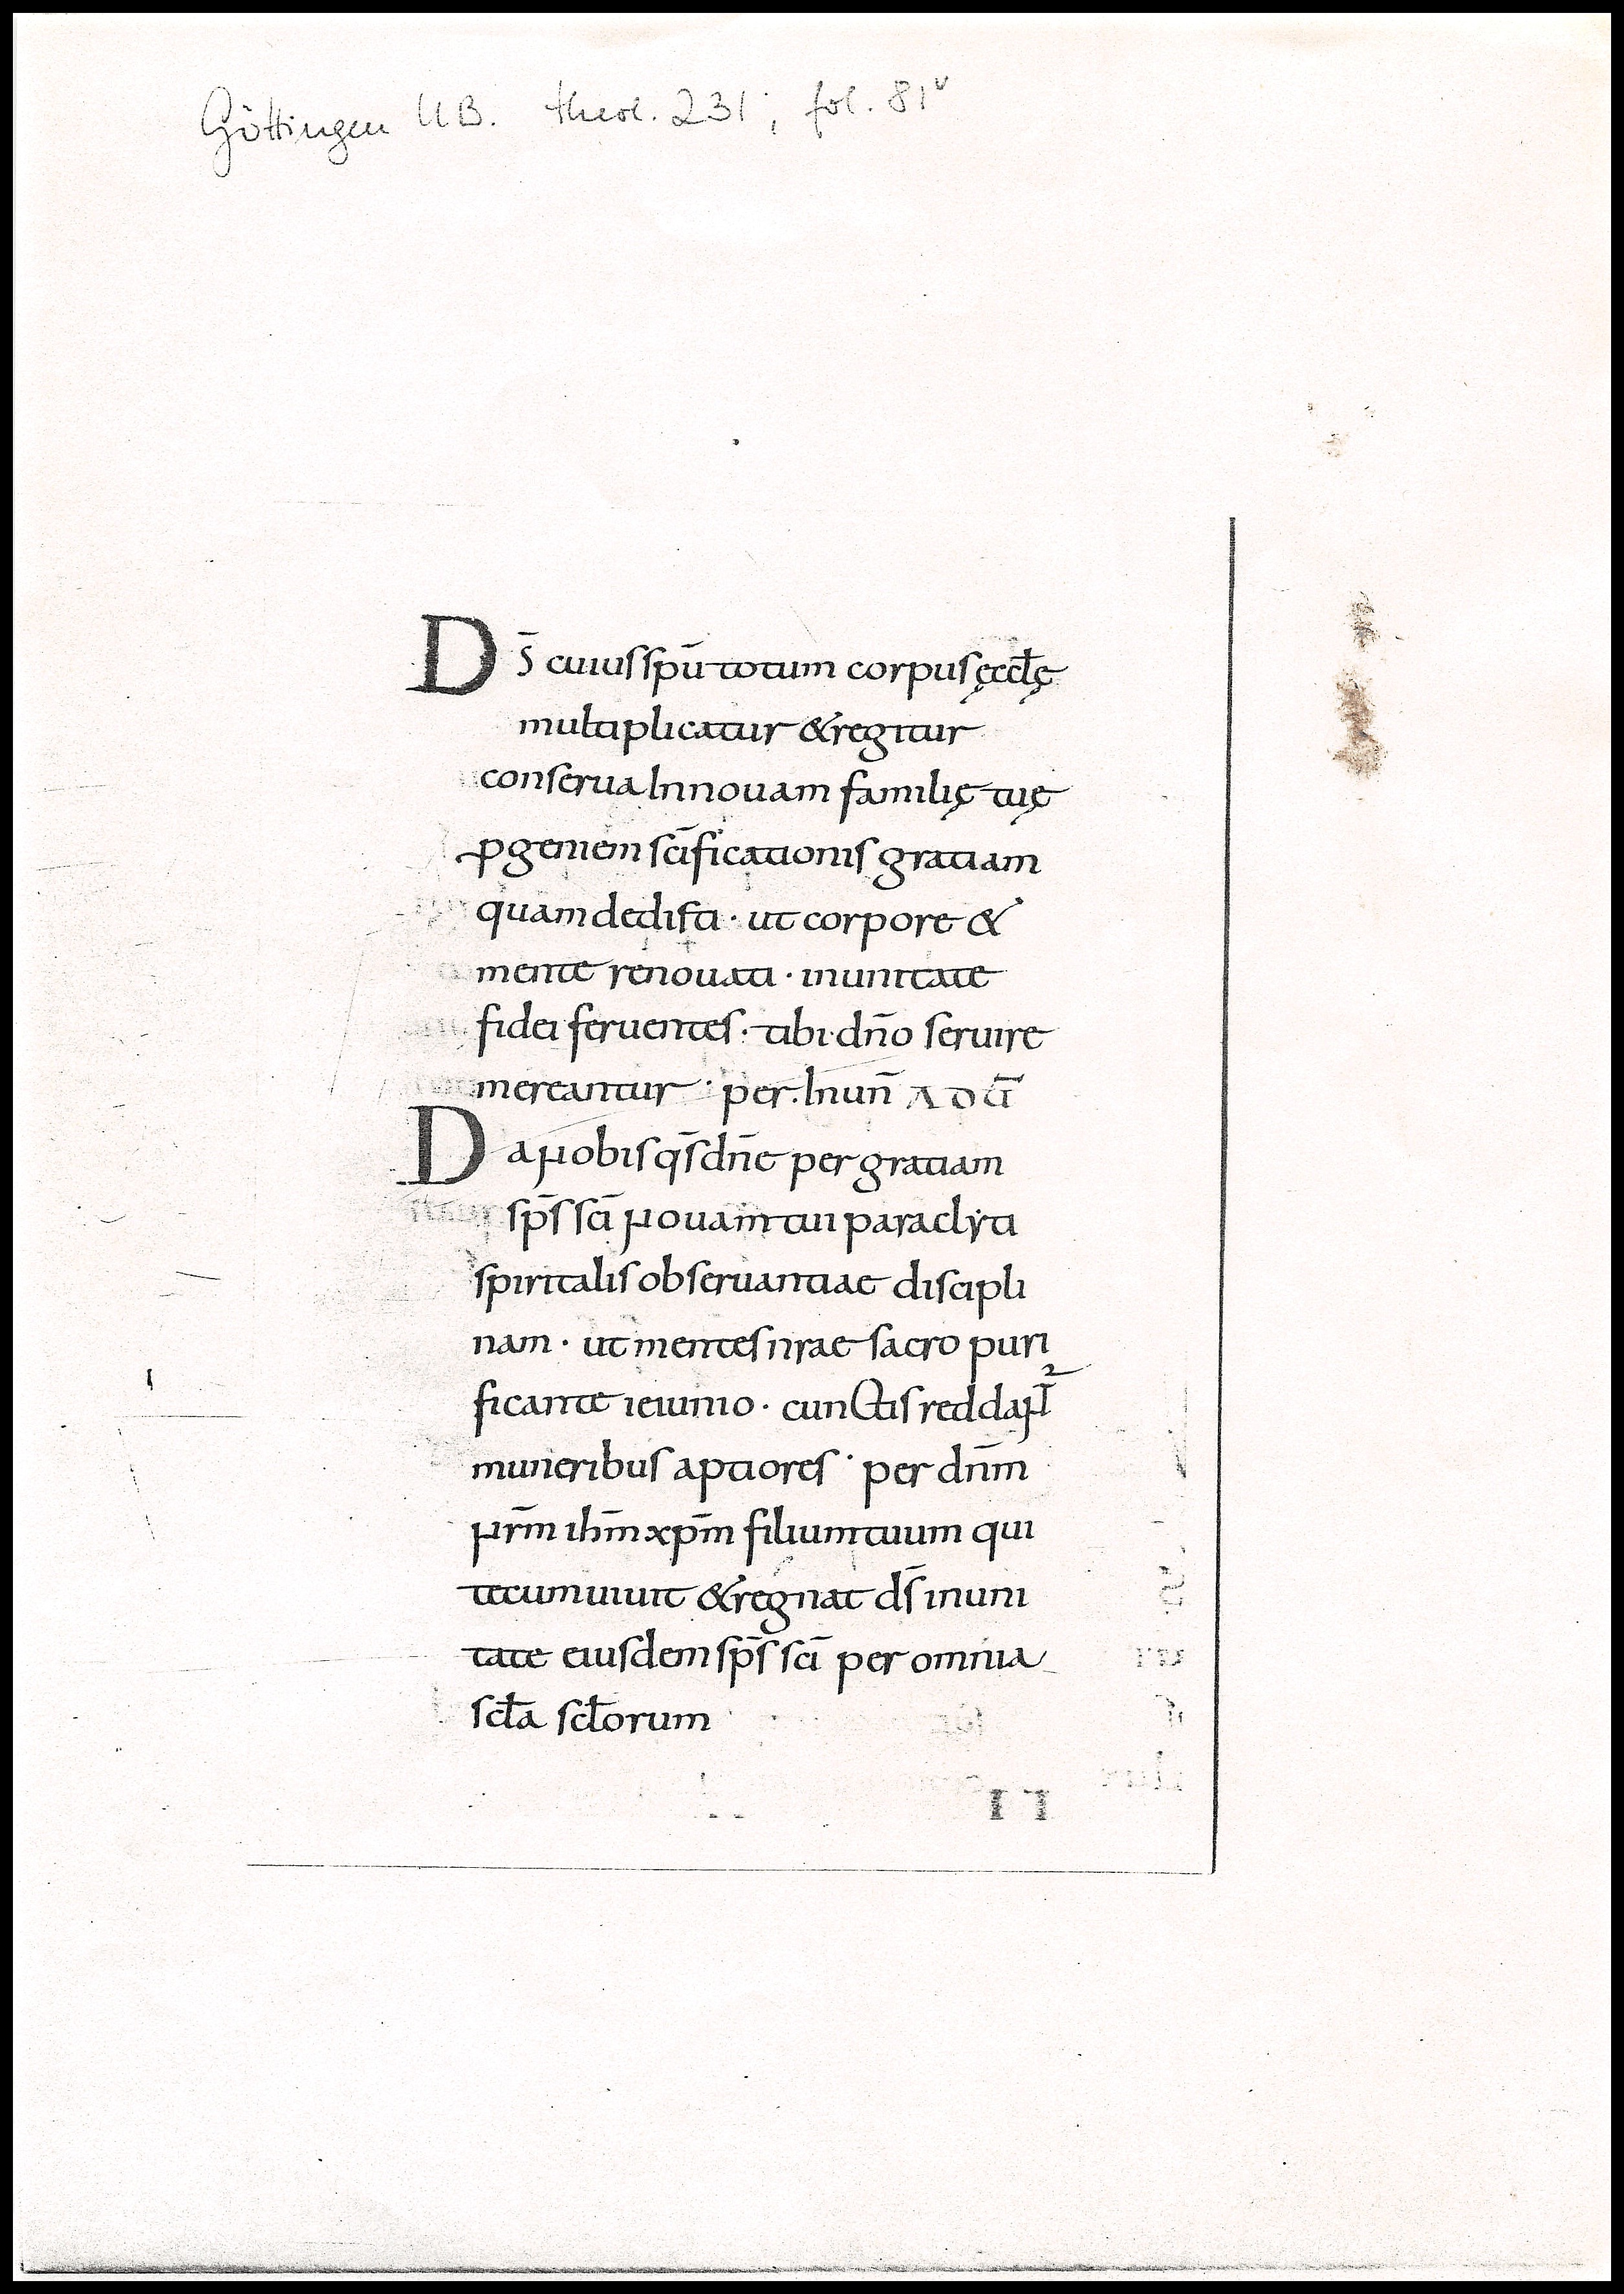 Göttingen UB. theol. 231; fol. 81v
Ds̄ cuius spū totum corpus ęccłę
multiplicatur & regitur
conserua In nouam familię tuę
ꝓgeniem sc̄ificationis gratiam
quam dedisti · ut corpore &
mente renouati · in unitate
fidei feruentes · tibi · dn̄o seruire
mereantur · per · In un̄ ADŪ
Da nobis qs̄ dn̄e per gratiam
sp̄s sc̄i nouam tui paraclyti
spiritalis obseruantiae discipli
nam · ut mentes nrae sacro puri
ficante ieiunio · cunctis reddant²
muneribus aptiores · per dn̄m
nr̄m ihm̄ xp̄m filium tuum qui
tecum uiuit & regnat ds̄ in uni
tate eiusdem sp̄s sc̄i per omnia
scła scłorum